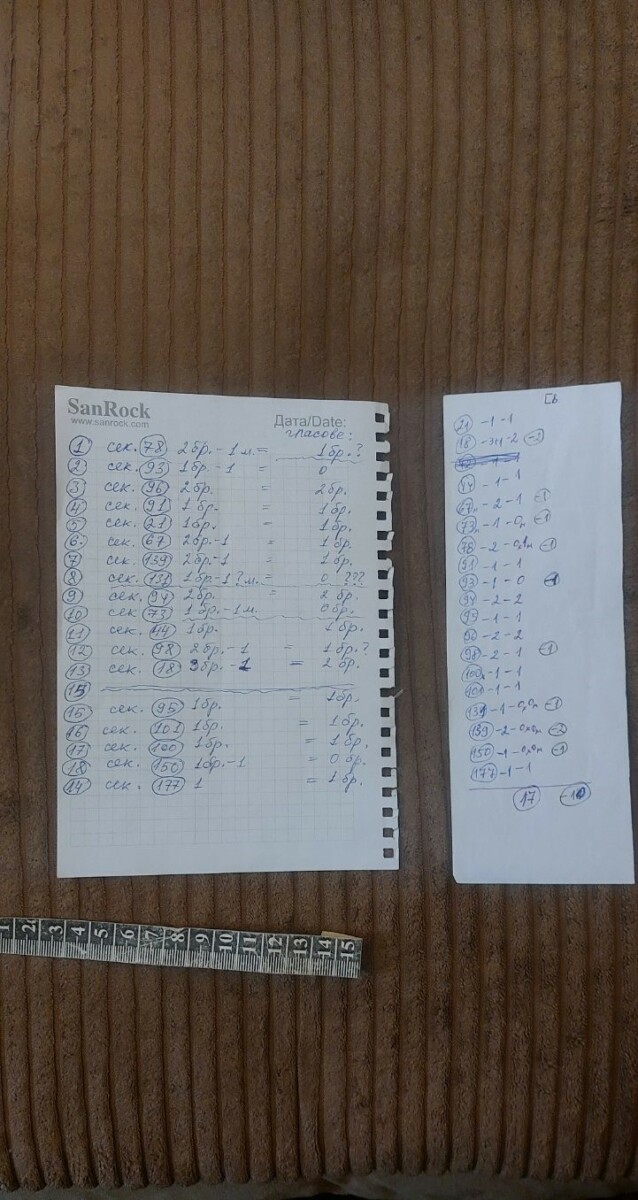 SanRock
www.sanrock.com
Дата/Date:
гласове:
1 сек. 78 2бр. - 1 м. = 1бр.?
2 сек. 93 1бр. - 1 = 0
3 сек. 96 2бр. = 2бр.
4 сек. 91 1бр. = 1бр.
5 сек. 21 1бр. = 1бр.
6. сек. 67 2бр. - 1 = 1бр.
7 сек. 139 2бр. - 1 = 1бр.
8 сек. 131 1бр - 1? м. = 0 ???
9 сек. 94 2бр. = 2 бр.
10 сек. 73 1бр. - 1 м. 0бр.
11 сек. 44 1бр. 1бр.
12 сек. 98 2бр. - 1 = 1бр.?
13 сек. 18 3бр. - 1 = 2 бр.
15
15 сек. 95 1бр. = 1бр.
16 сек. 101 1бр. = 1бр.
17 сек. 100 1бр. = 1бр.
18 сек. 150 1бр. - 1 = 0 бр.
14 сек. 177 1 = 1 бр.
21 - 1 - 1
18 - 2
44 - 1 - 1
67 - 2 - 1 -1
73 - 1 -1
78 - 2 -1
91 - 1 - 1
93 - 1 - 0 -1
94 - 2 - 2
95 - 1 - 1
96 - 2 - 2
98 - 2 - 1 -1
100 - 1 - 1
101 - 1 - 1
131 - 1 -1
139 - 2 -2
150 - 1 -1
177 - 1 - 1
17 -10
1 2 3 4 5 6 7 8 9 10 11 12 13 14 15